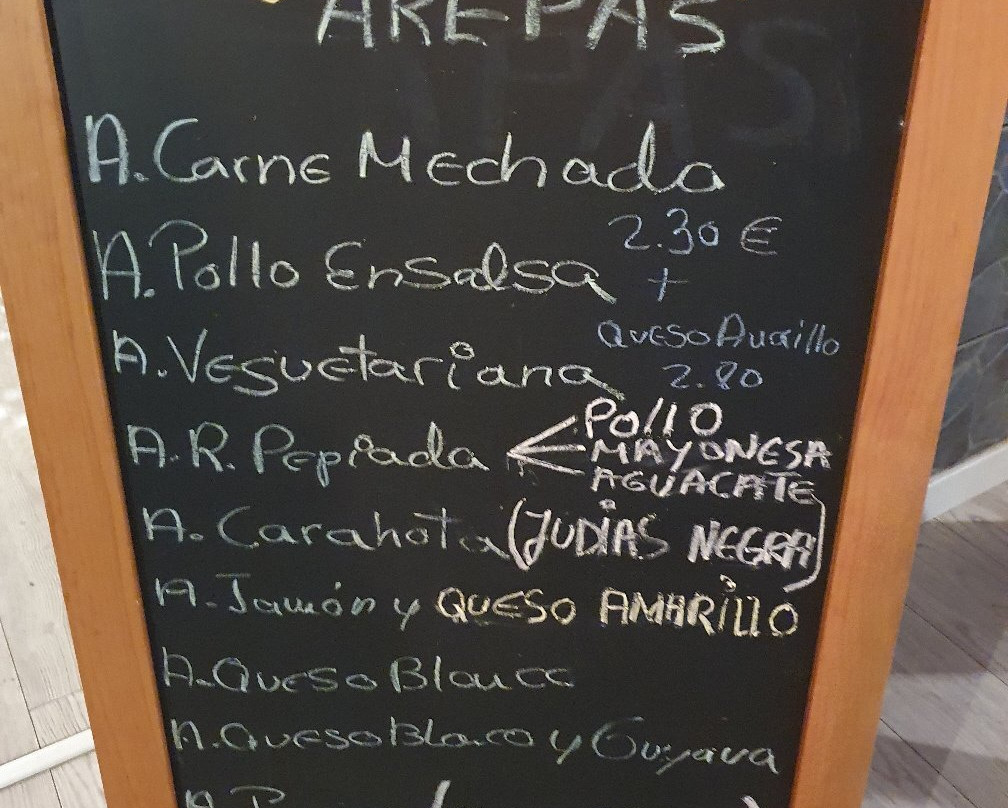 AREPAS
A. Carne Mechada
2.30 €
A. Pollo Ensalsa +
Queso Amarillo
A. Veguetariana 2.80
A. R. Pepiada < POLLO
MAYONESA
AGUACATE
A. Carahota (JUDIAS NEGRA)
A. Jamón y QUESO AMARILLO
A. Queso Blanco
A. Queso Blaco y Guyava